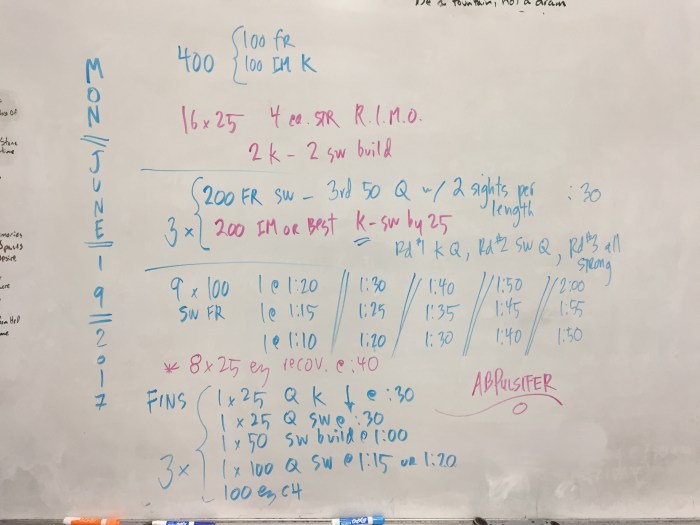 MON JUNE 19 2017
400 { 100 FR
100 IM K
16 x 25 4 ea. STR R.I.M.O.
2 K - 2 SW build
3 x { 200 FR SW - 3rd 50 Q w/ 2 sights per length :30
200 IM OR BEST K-SW by 25
Rd #1 K Q, Rd #2 SW Q, Rd #3 all strong
9 x 100 1 @ 1:20 // 1:30 // 1:40 // 1:50 // 2:00
SW FR 1 @ 1:15 1:25 1:35 1:45 1:55
1 @ 1:10 1:20 1:30 1:40 1:50
* 8 x 25 ez recov. @ :40
ABPULSIFER
FINS
3 x { 1 x 25 Q K ↓ @ :30
1 x 25 Q SW @ :30
1 x 50 SW build @ 1:00
1 x 100 Q SW @ 1:15 or 1:20
100 ez C4